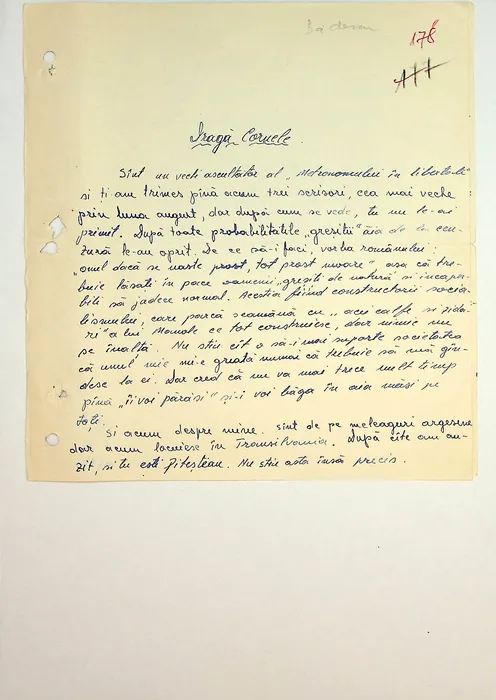 Bădescu
178
177
Dragă Cornele.
Sînt un vechi ascultător al „Metronomului în libertate"
și ți-am trimes pînă acum trei scrisori, cea mai veche
prin luna august, dar după cum se vede, tu nu le-ai
primit. După toate probabilitățile „greșiții" ăia de la cen-
zură le-au oprit. De ce să-i faci, vorba românului:
„omul dacă se naște prost, tot prost moare" așa că tre-
buie lăsați în pace oamenii „greșiți de natură" și incapa-
bili să judece normal. Aceștia fiind constructorii socia-
lismului, care parcă seamănă cu „acei calfe și zida-
ri" a lui Manole ce tot construiesc, dar nimic nu
se înalță. Nu știu cît o să-i mai suporte societatea
că unul mie mi-e greață numai că trebuie să mă gîn-
desc la ei. Dar cred că nu va mai trece mult timp
pînă „îi voi părăsi" și-i voi băga în aia măsi pe
toți.
Și acum despre mine. Sînt de pe meleaguri argeșene
dar acum locuiesc în Transilvania. După cîte am au-
zit, și tu ești Piteștean. Nu știu asta însă precis.